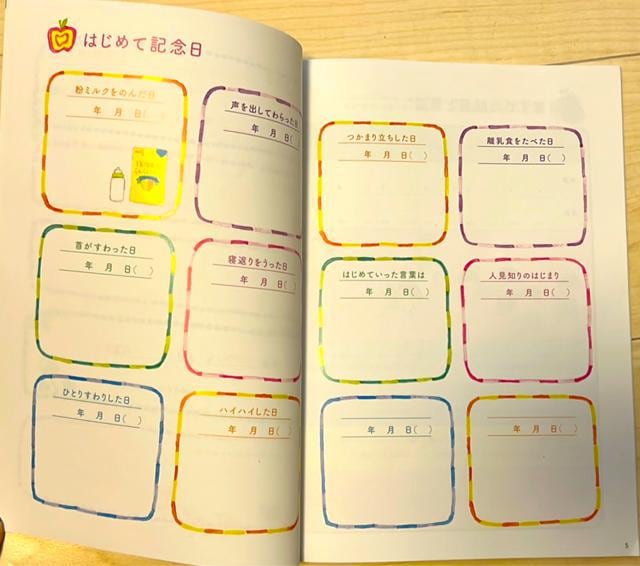 はじめて記念日
粉ミルクをのんだ日
年 月 日( )
声を出してわらった日
年 月 日(
首がすわった日
年 月 日( )
寝返りをうった日
年 月 日( )
ひとりすわりした日
年 月 日( )
ハイハイした日
年 月 日( )
つかまり立ちした日
年 月 日( )
離乳食をたべた日
年 月 日( )
はじめていった言葉は
年 月 日( )
人見知りのはじまり
年 月 日( )
年 月 日( )
年 月 日( )
5